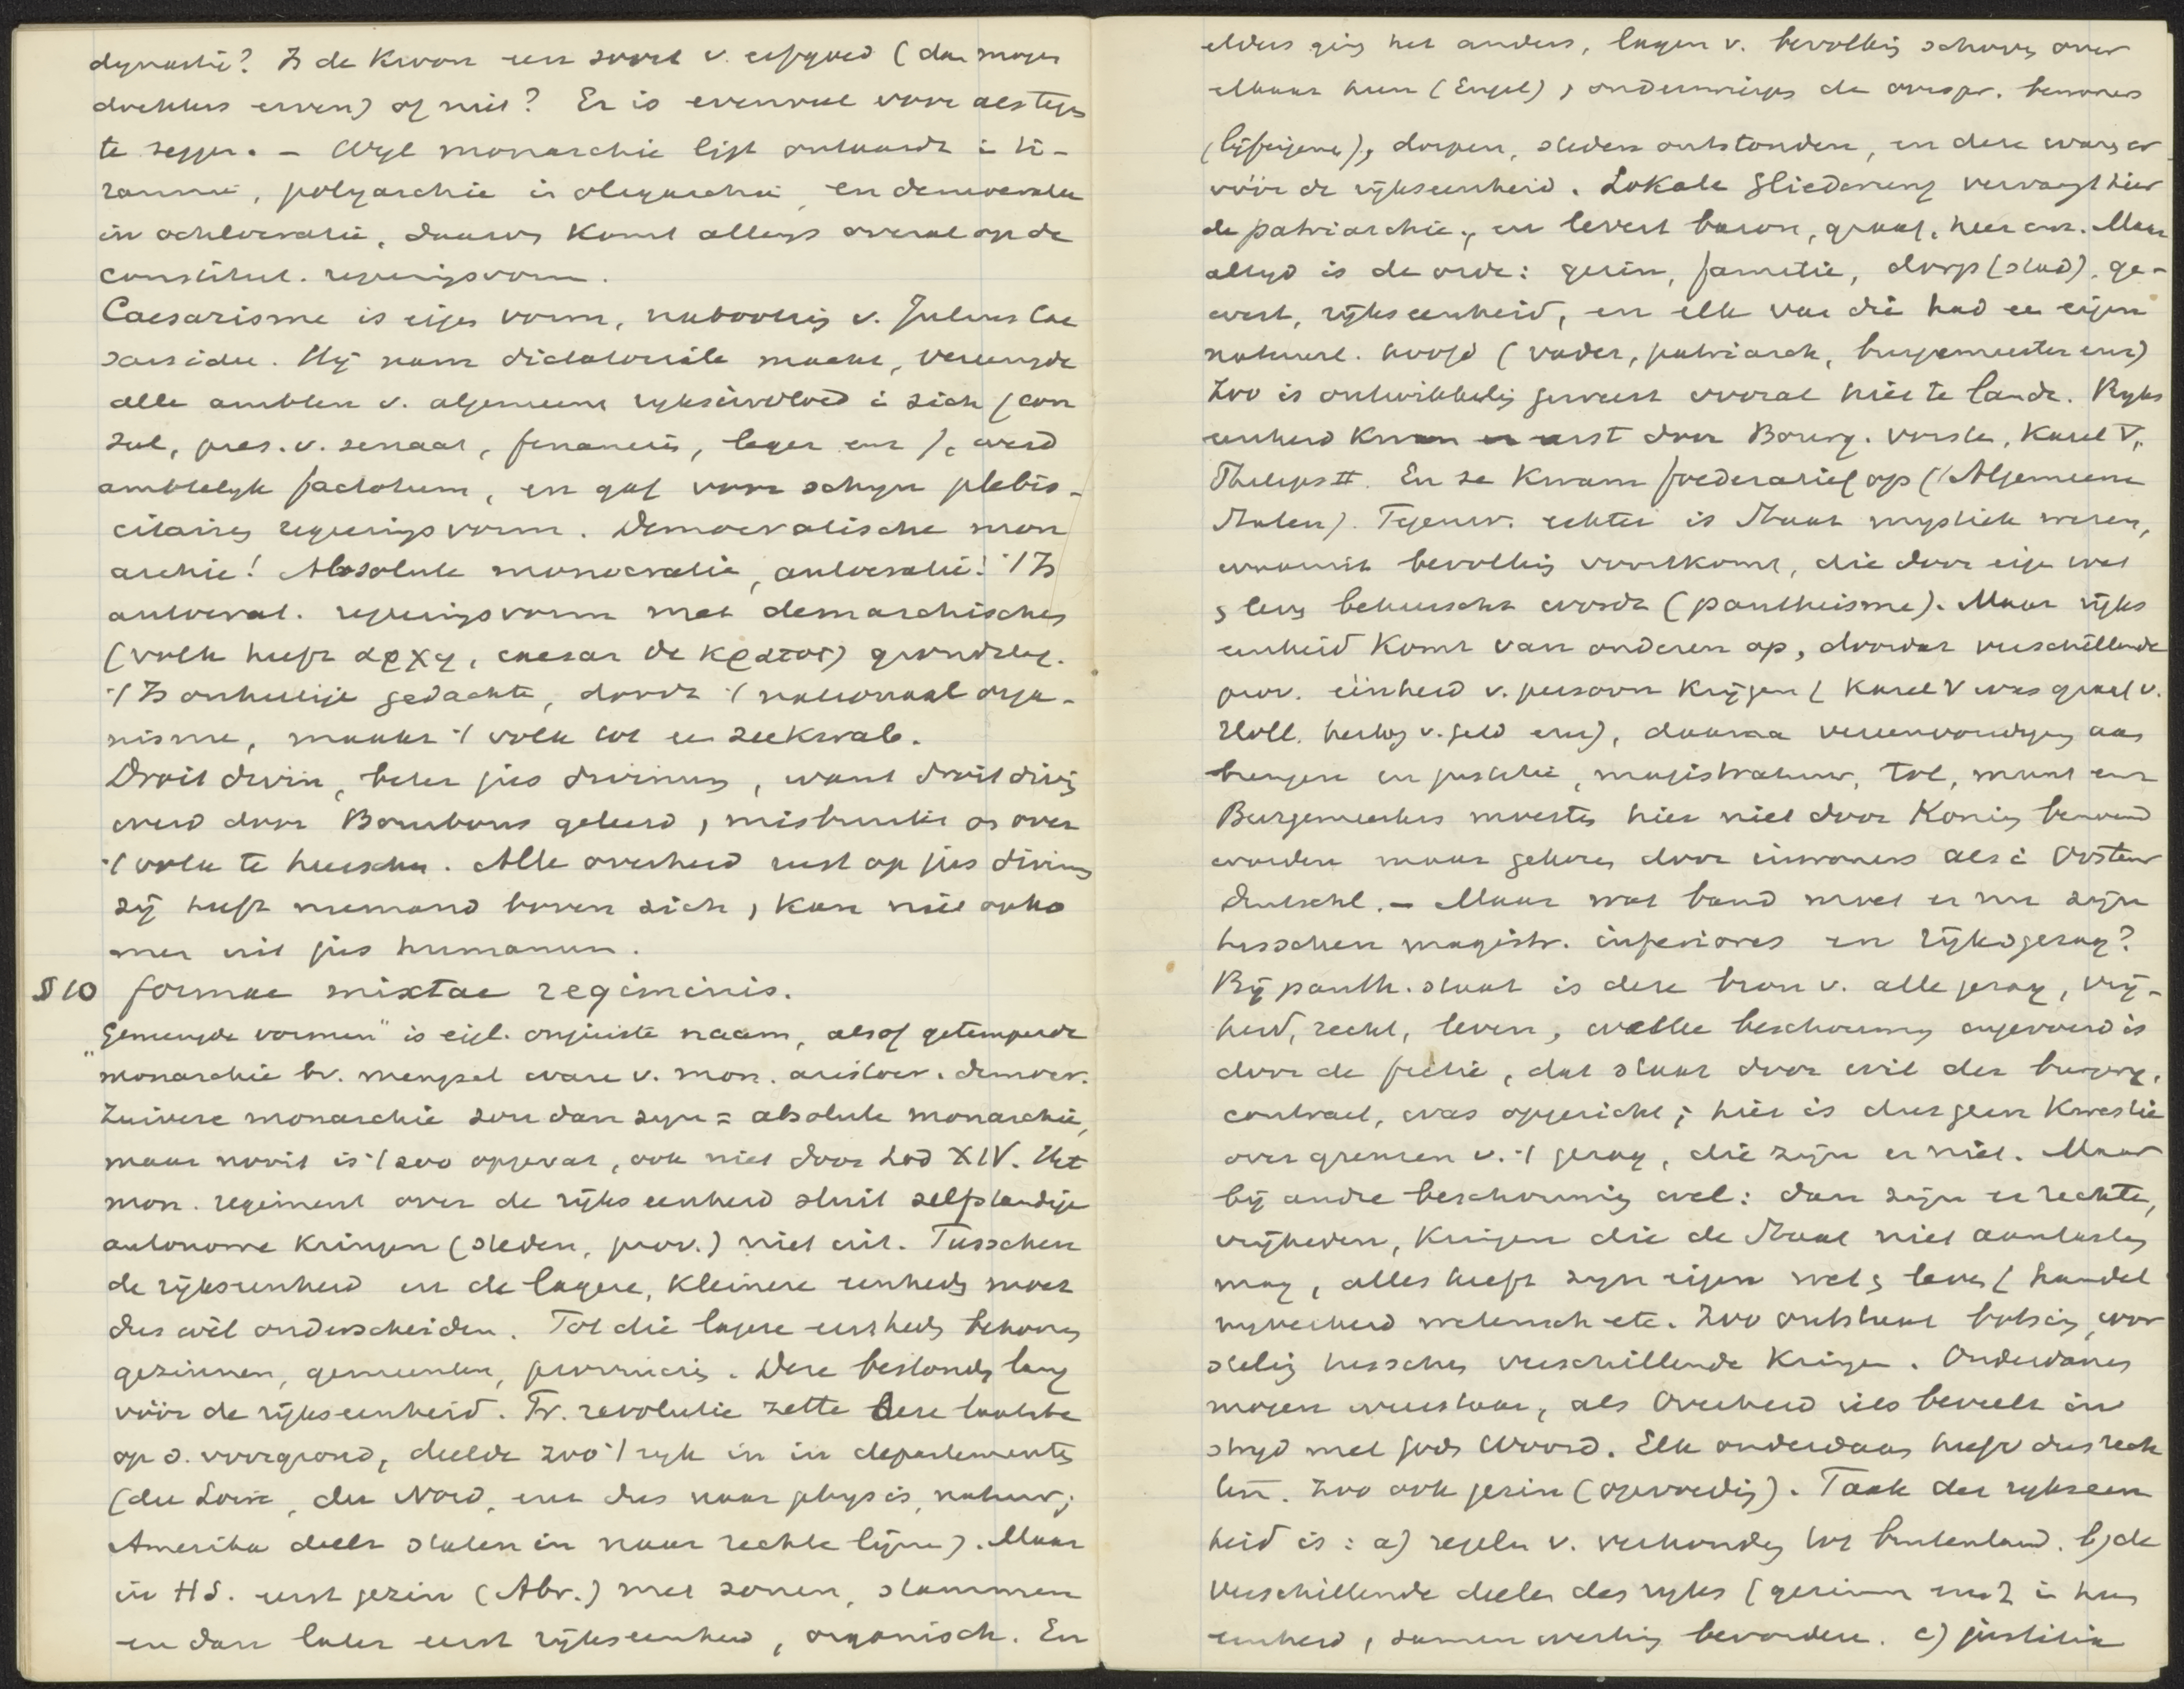 dynastie? Is de Kroon een soort v. erfgoed (dan mogen
dochters erven) of niet? Er is evenveel voor als tegen
te zeggen. – Wyl monarchie ligt ontaardt i ti-
rannie, polyarchie in oligarchie, en democratie
in ochlocratie, daarom komt alleys overal op de
constitut. regeringsvorm.
Caesarisme is eigen vorm, nabootsing v. Julius Cae
sars idee. Hij nam dictatoriale macht, vereenigde
alle ambten v. algemeene ryksinvloed i zich (con
sul, pres. v. senaat, financiën, leger enz), werd
ambtelyk factotum, en gaf voor schyn plebis-
citairen regeeringsvorm. Democratische mon
archie! Absolute monocratie, autocratie! 't Is
autocrat. regeringsvorm met demarchischen
(volk heeft αρχη, caesar de κρατος) grondslag.
't Is onheilige gedachte, doodt 't nationaal orga-
nisme, maakt 't volk tot een zeekwab.
Droit divin, beter jus divinum, want droit divin
werd door Bourbons geleerd, misbruikt om over
't volk te heerschen. Alle overheid rust op jus divinum
zij heeft niemand boven zich, kan niet opko
men uit jus humanum.
§ 10 formae mixtae regiminis.
„Gemengde vormen" is eigl. onjuiste naam, alsof getemperde
monarchie bv. mengsel ware v. mon. aristocr. democr.
Zuivere monarchie zou dan zyn = absolute monarchie,
maar nooit is 't zoo opgevat, ook niet door Lod XIV. Het
mon. regiment over de rijkseenheid sluit zelfstandige
autonome kringen (steden, prov.) niet uit. Tusschen
de rijkseenheid en de lagere, kleinere eenheden moet
dus wèl onderscheiden. Tot die lagere eenheden behooren
gezinnen, gemeenten, provinciën. Deze bestonden lang
vóór de rijkseenheid. Fr. revolutie zette deze laatste
op d. voorgrond, deelde zoo 't ryk in in departementen
(du Loire, du Nord, enz dus naar physis, natuur;
Amerika deelt staten in naar rechte lijnen). Maar
in H.S. eerst gezin (Abr.) met zonen, stammen
en dan later eerst rijkseenheid, organisch. En
elders ging het anders, lagen v. bevolking schoven over
elkaar heen (Engel), onderwierpen de oorspr. bewoners
(lijfeigene), dorpen, steden ontstonden, en deze waren er
vóór de rijkseenheid. Lokale Gliederung vervangt hier
de patriarchie, en levert baron, graaf, heer enz. Maar
altijd is de orde: gezin, familie, dorp (stad), ge-
west, rijkseenheid, en elk van die had een eigen
natuurl. hoofd (vader, patriarch, burgemeester enz)
Zoo is ontwikkeling geweest vooral hier te lande. Ryks
eenheid kwam eerst door Bourg. vorsten, Karel V,
Philips II. En ze kwam foederatief op (Algemeene
Staten). Tegenw. echter is Staat mystiek wezen,
waaruit bevolking voortkomt, die door eigen wet
s leven beheerscht wordt (pantheisme). Maar rijks
eenheid komt van onderen op, doordat verschillende
prov. éénheid v. persoon krijgen (Karel V was graaf v.
Holl. hertog v. Geld enz), daarna vereenvoudiging aan
brengen in justitie, magistratuur, tol, munt enz
Burgemeesters moesten hier niet door Koning benoemd
worden maar gekozen door inwoners als i Oosten
Duitschl. – Maar wat band moet er nu zijn
tusschen magistr. inferiores en rijksgezag?
Bij panth. staat is deze bron v. alle gezag, vrij-
heid, recht, leven, welke beschouwing ingevoerd is
door de fictie, dat staat door wil der burgers,
contract, was opgericht; hier is dus geen kwestie
over grenzen v. 't gezag, die zijn er niet. Maar
bij andre beschouwing wel: dan zijn er rechten,
vrijheden, kringen die de Staat niet aantasten
mag, alles heeft zyn eigen wet s leven (handel
nyverheid wetensch etc. Zoo ontstaat botsing, wor
steling tusschen verschillende kringen. Onderdanen
mogen weerstaan, als Overheid iets beveelt in
stryd met Gods Woord. Elk onderdaan heeft dus rech
ten. Zoo ook gezin (opvoeding). Taak der rykseen
heid is: a) regelen v. verhouding tot buitenland. b) de
verschillende deelen des ryks (gezinnen enz) i hun
eenheid, samenwerking bevorderen. c) justitie